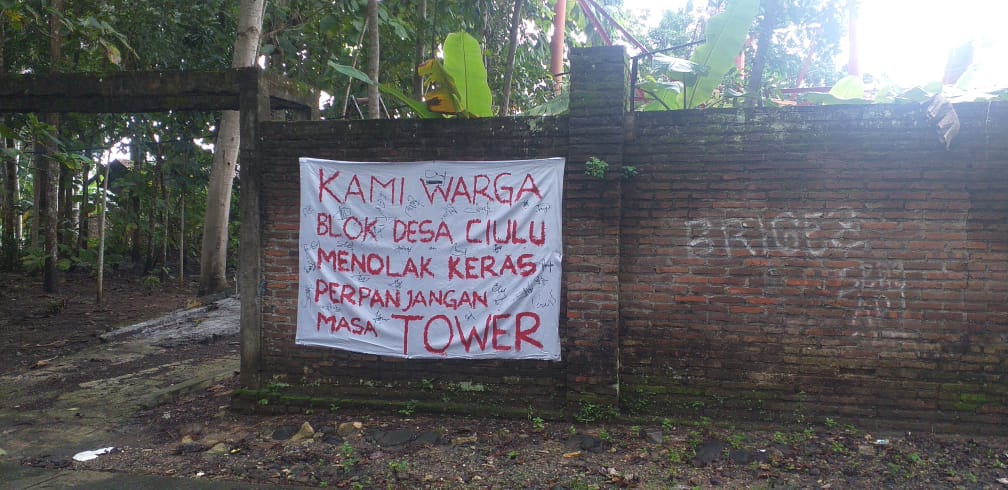 KAMI WARGA
BLOK DESA CIULU
MENOLAK KERAS
PERPANJANGAN
MASA TOWER
BRIGEZ